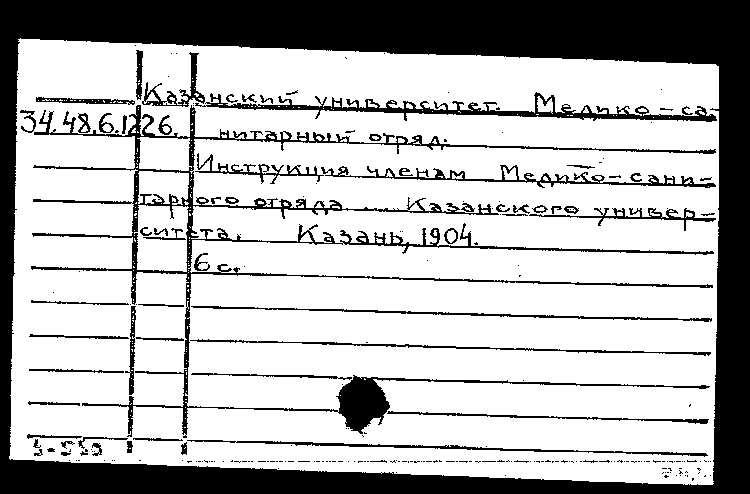 Казанский университет. Медико-са-
34.48.6.1226. нитарный отряд.
Инструкция членам Медико-сани-
тарного отряда ... Казанского универ-
ситета. Казань, 1904.
6 с.